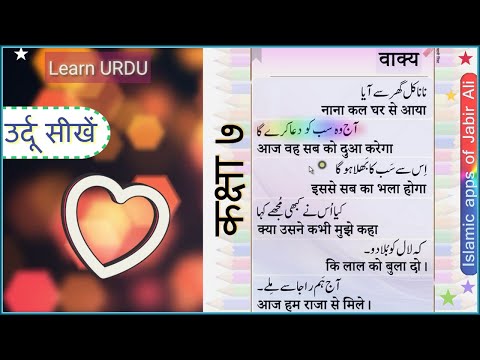 Learn URDU
उर्दू सीखें
कक्षा ७
वाक्य
نانا کل گھر سے آیا
नाना कल घर से आया
آج وہ سب کو دعا کرے گا
आज वह सब को दुआ करेगा
اِس سے سَب کا بَھلا ہو گا
इससे सब का भला होगा
کیا اُس نے کبھی مُجھے کہا
क्या उसने कभी मुझे कहा
کہ لال کو بُلا دو۔
कि लाल को बुला दो।
آج ہَم راجا سے مِلے۔
आज हम राजा से मिले।
Islamic apps of Jabir Ali